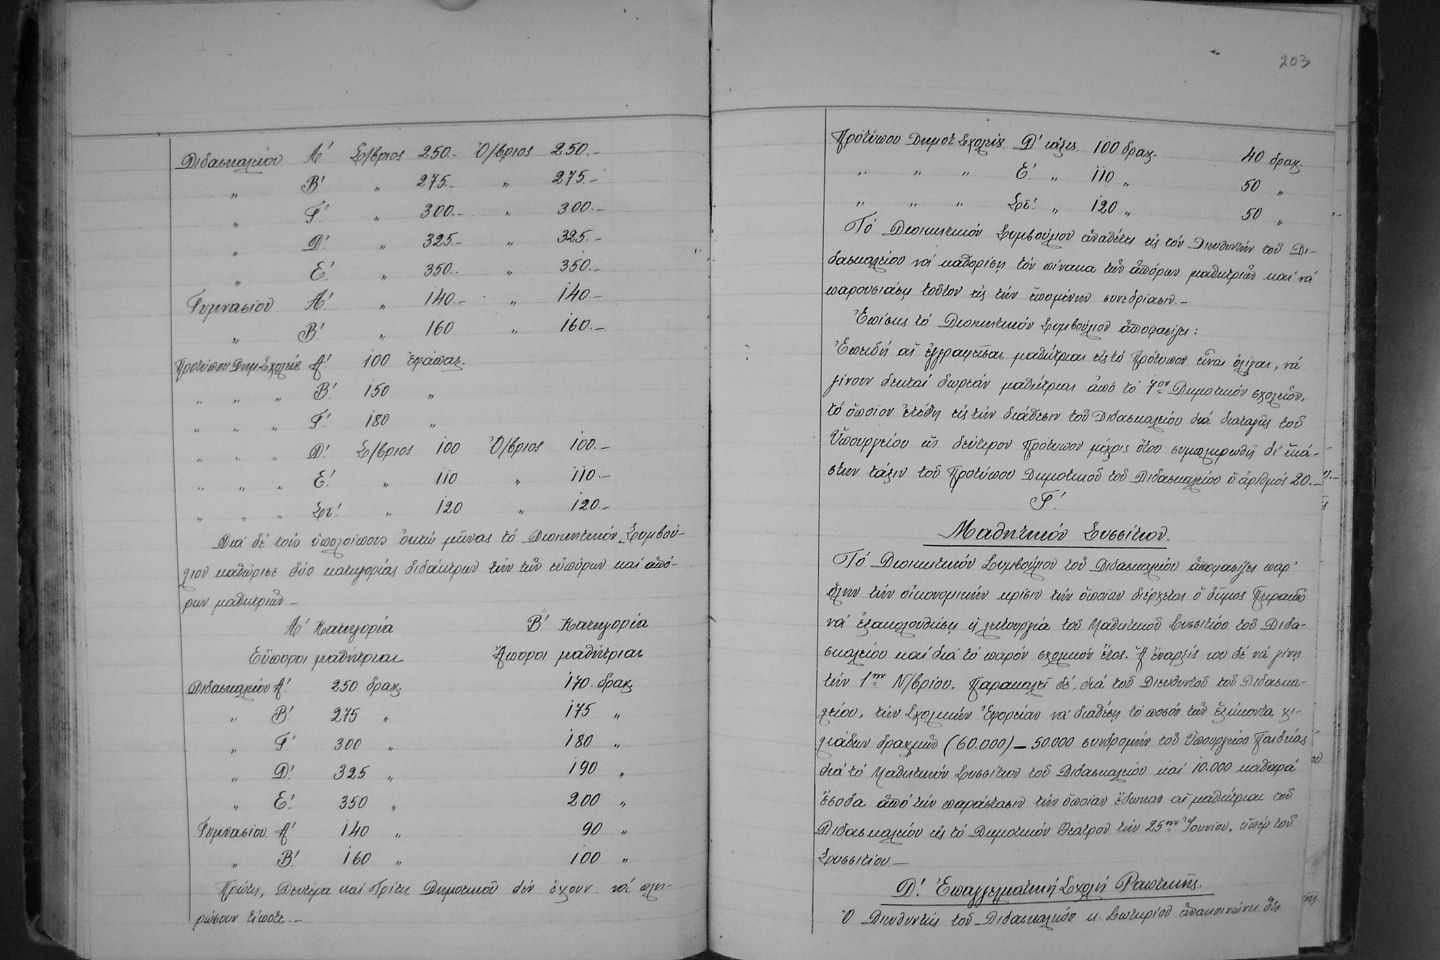 Διδασκαλείου Α΄ Σ/βριος 250.- Ὀ/βριος 250.-
„ Β΄ „ 275.- „ 275.-
„ Γ΄ „ 300.- „ 300.-
„ Δ΄ „ 325.- „ 325.-
„ Ε΄ „ 350.- „ 350.-
Γυμνασίου Α΄ „ 140.- „ 140.-
„ Β΄ „ 160 „ 160.-
Προτύπου Δημ. Σχολῆς Α΄ 100 ἐφάπαξ.
„ „ „ Β΄ 150 „
„ „ „ Γ΄ 180 „
„ „ „ Δ΄ Σ/βριος 100 Ὀ/βριος 100.-
„ „ „ Ε΄ „ 110 „ 110.-
„ „ „ Στ΄ „ 120 „ 120.-
Διά δέ τούς ὑπολοίπους ὀκτώ μῆνας τό Διοικητικόν Συμβού-
λιον καθώρισε δύο κατηγορίας διδάκτρων τήν τῶν εὐπόρων καί ἀπό-
ρων μαθητριῶν.-
Α΄ Κατηγορία Β΄ Κατηγορία
Εὔποροι μαθήτριαι Ἄποροι μαθήτριαι
Διδασκαλείου Α΄ 250 δραχ. 170 δραχ.
„ Β΄ 275 „ 175 „
„ Γ΄ 300 „ 180 „
„ Δ΄ 325 „ 190 „
„ Ε΄ 350 „ 200 „
Γυμνασίου Α΄ 140 „ 90 „
„ Β΄ 160 „ 100 „
Πρώτη, Δευτέρα καί Τρίτη Δημοτικοῦ δέν ἔχουν νά πλη-
ρώσουν τίποτε.-
203
Προτύπου Δημοτ. Σχολῆς Δ΄ τάξις 100 δραχ. 40 δραχ.
„ „ „ Ε΄ „ 110 „ 50 „
„ „ „ Στ΄ „ 120 „ 50 „
Τό Διοικητικόν Συμβούλιον ἀναθέτει εἰς τόν Διευθυντήν τοῦ Δι-
δασκαλείου νά καθορίσῃ τόν πίνακα τῶν ἀπόρων μαθητριῶν καί νά
παρουσιάσῃ τοῦτον εἰς τήν ἑπομένην συνεδρίασιν.-
Ἐπίσης τό Διοικητικόν Συμβούλιον ἀποφασίζει:
Ἐπειδή αἱ ἐγγραφεῖσαι μαθήτριαι εἰς τό Πρότυπον εἶναι ὀλίγαι, νά
γίνουν δεκταί δωρεάν μαθήτριαι ἀπό τό 7ον Δημοτικόν σχολεῖον,
τό ὁποῖον ἐτέθη εἰς τήν διάθεσιν τοῦ Διδασκαλείου διά διαταγῆς τοῦ
Ὑπουργείου ὡς δεύτερον Πρότυπον μέχρις ὅτου συμπληρωθῇ δι' ἑκά-
στην τάξιν τοῦ Προτύπου Δημοτικοῦ τοῦ Διδασκαλείου ὁ ἀριθμός 20.-
Γ΄
Μαθητικόν Συσσίτιον.
Τό Διοικητικόν Συμβούλιον τοῦ Διδασκαλείου ἀποφασίζει παρ'
ὅλην τήν οἰκονομικήν κρίσιν τήν ὁποίαν διέρχεται ὁ δῆμος Πειραιῶς
νά ἐξακολουθήσῃ ἡ λειτουργία τοῦ Μαθητικοῦ Συσσιτίου τοῦ Διδα-
σκαλείου καί διά τό παρόν σχολικόν ἔτος. Ἡ ἔναρξίς του δέ νά γίνῃ
τήν 1ην Ν/βρίου. Παρακαλεῖ δέ, διά τοῦ Διευθυντοῦ τοῦ Διδασκα-
λείου, τήν Σχολικήν Ἐφορείαν νά διαθέσῃ τό ποσόν τῶν ἑξήκοντα χι-
λιάδων δραχμῶν (60.000) - 50.000 συνδρομήν τοῦ Ὑπουργείου Παιδείας
διά τό Μαθητικόν Συσσίτιον τοῦ Διδασκαλείου καί 10.000 καθαρά
ἔσοδα ἀπό τήν παράστασιν τήν ὁποίαν ἔδωκαν αἱ μαθήτριαι τοῦ
Διδασκαλείου εἰς τό Δημοτικόν Θέατρον τήν 25ην Ἰουνίου, ὑπέρ τοῦ
Συσσιτίου.-
Δ΄. Ἐπαγγελματική Σχολή Ραπτικῆς.
Ὁ Διευθυντής τοῦ Διδασκαλείου κ. Σωτηρίου ἀνακοινώνει ὅτι